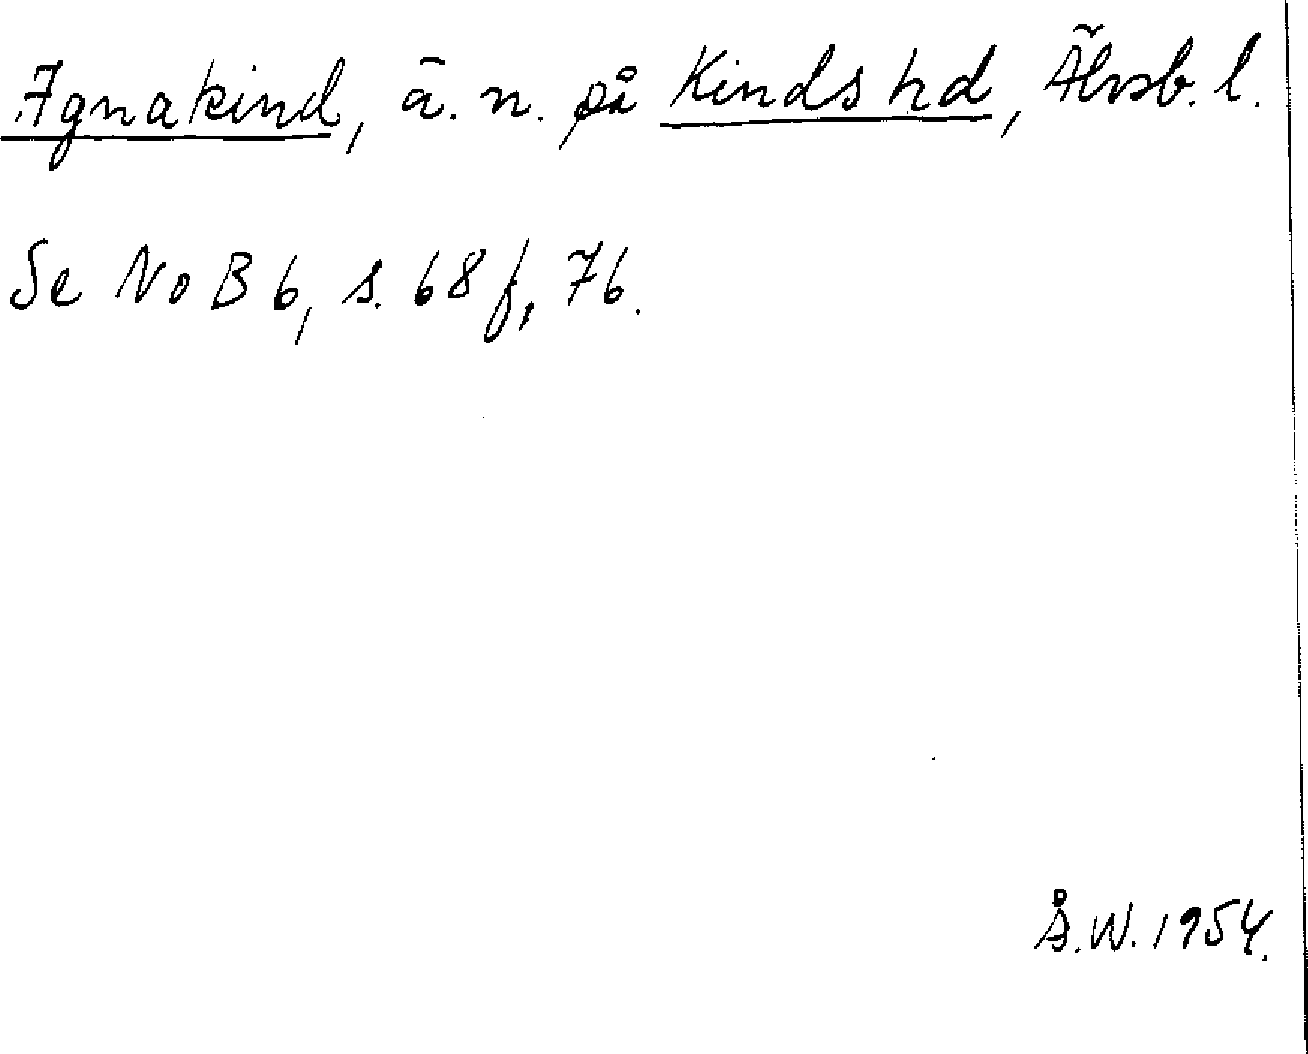 Ignakind, ä. n. på Kinds hd, Älvsb. l.
Se NoB 6, s. 68 f, 76.
Å.W. 1954.